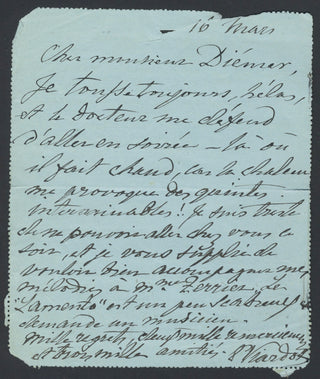 16 Mars
Cher monsieur Diémer,
Je tousse toujours, hélas,
et le docteur me défend
d'aller en soirée – là où
il fait chaud, car la chaleur
me provoque des quintes
interminables! Je suis triste
de ne pouvoir aller chez vous ce
soir, et je vous supplie de
vouloir bien accompagner mes
mélodies à Mme Ferrier, le
"Lamento" est un peu scabreux et
demande un musicien.
Mille regrets, deux mille remerciements
et trois mille amitiés. P Viardot